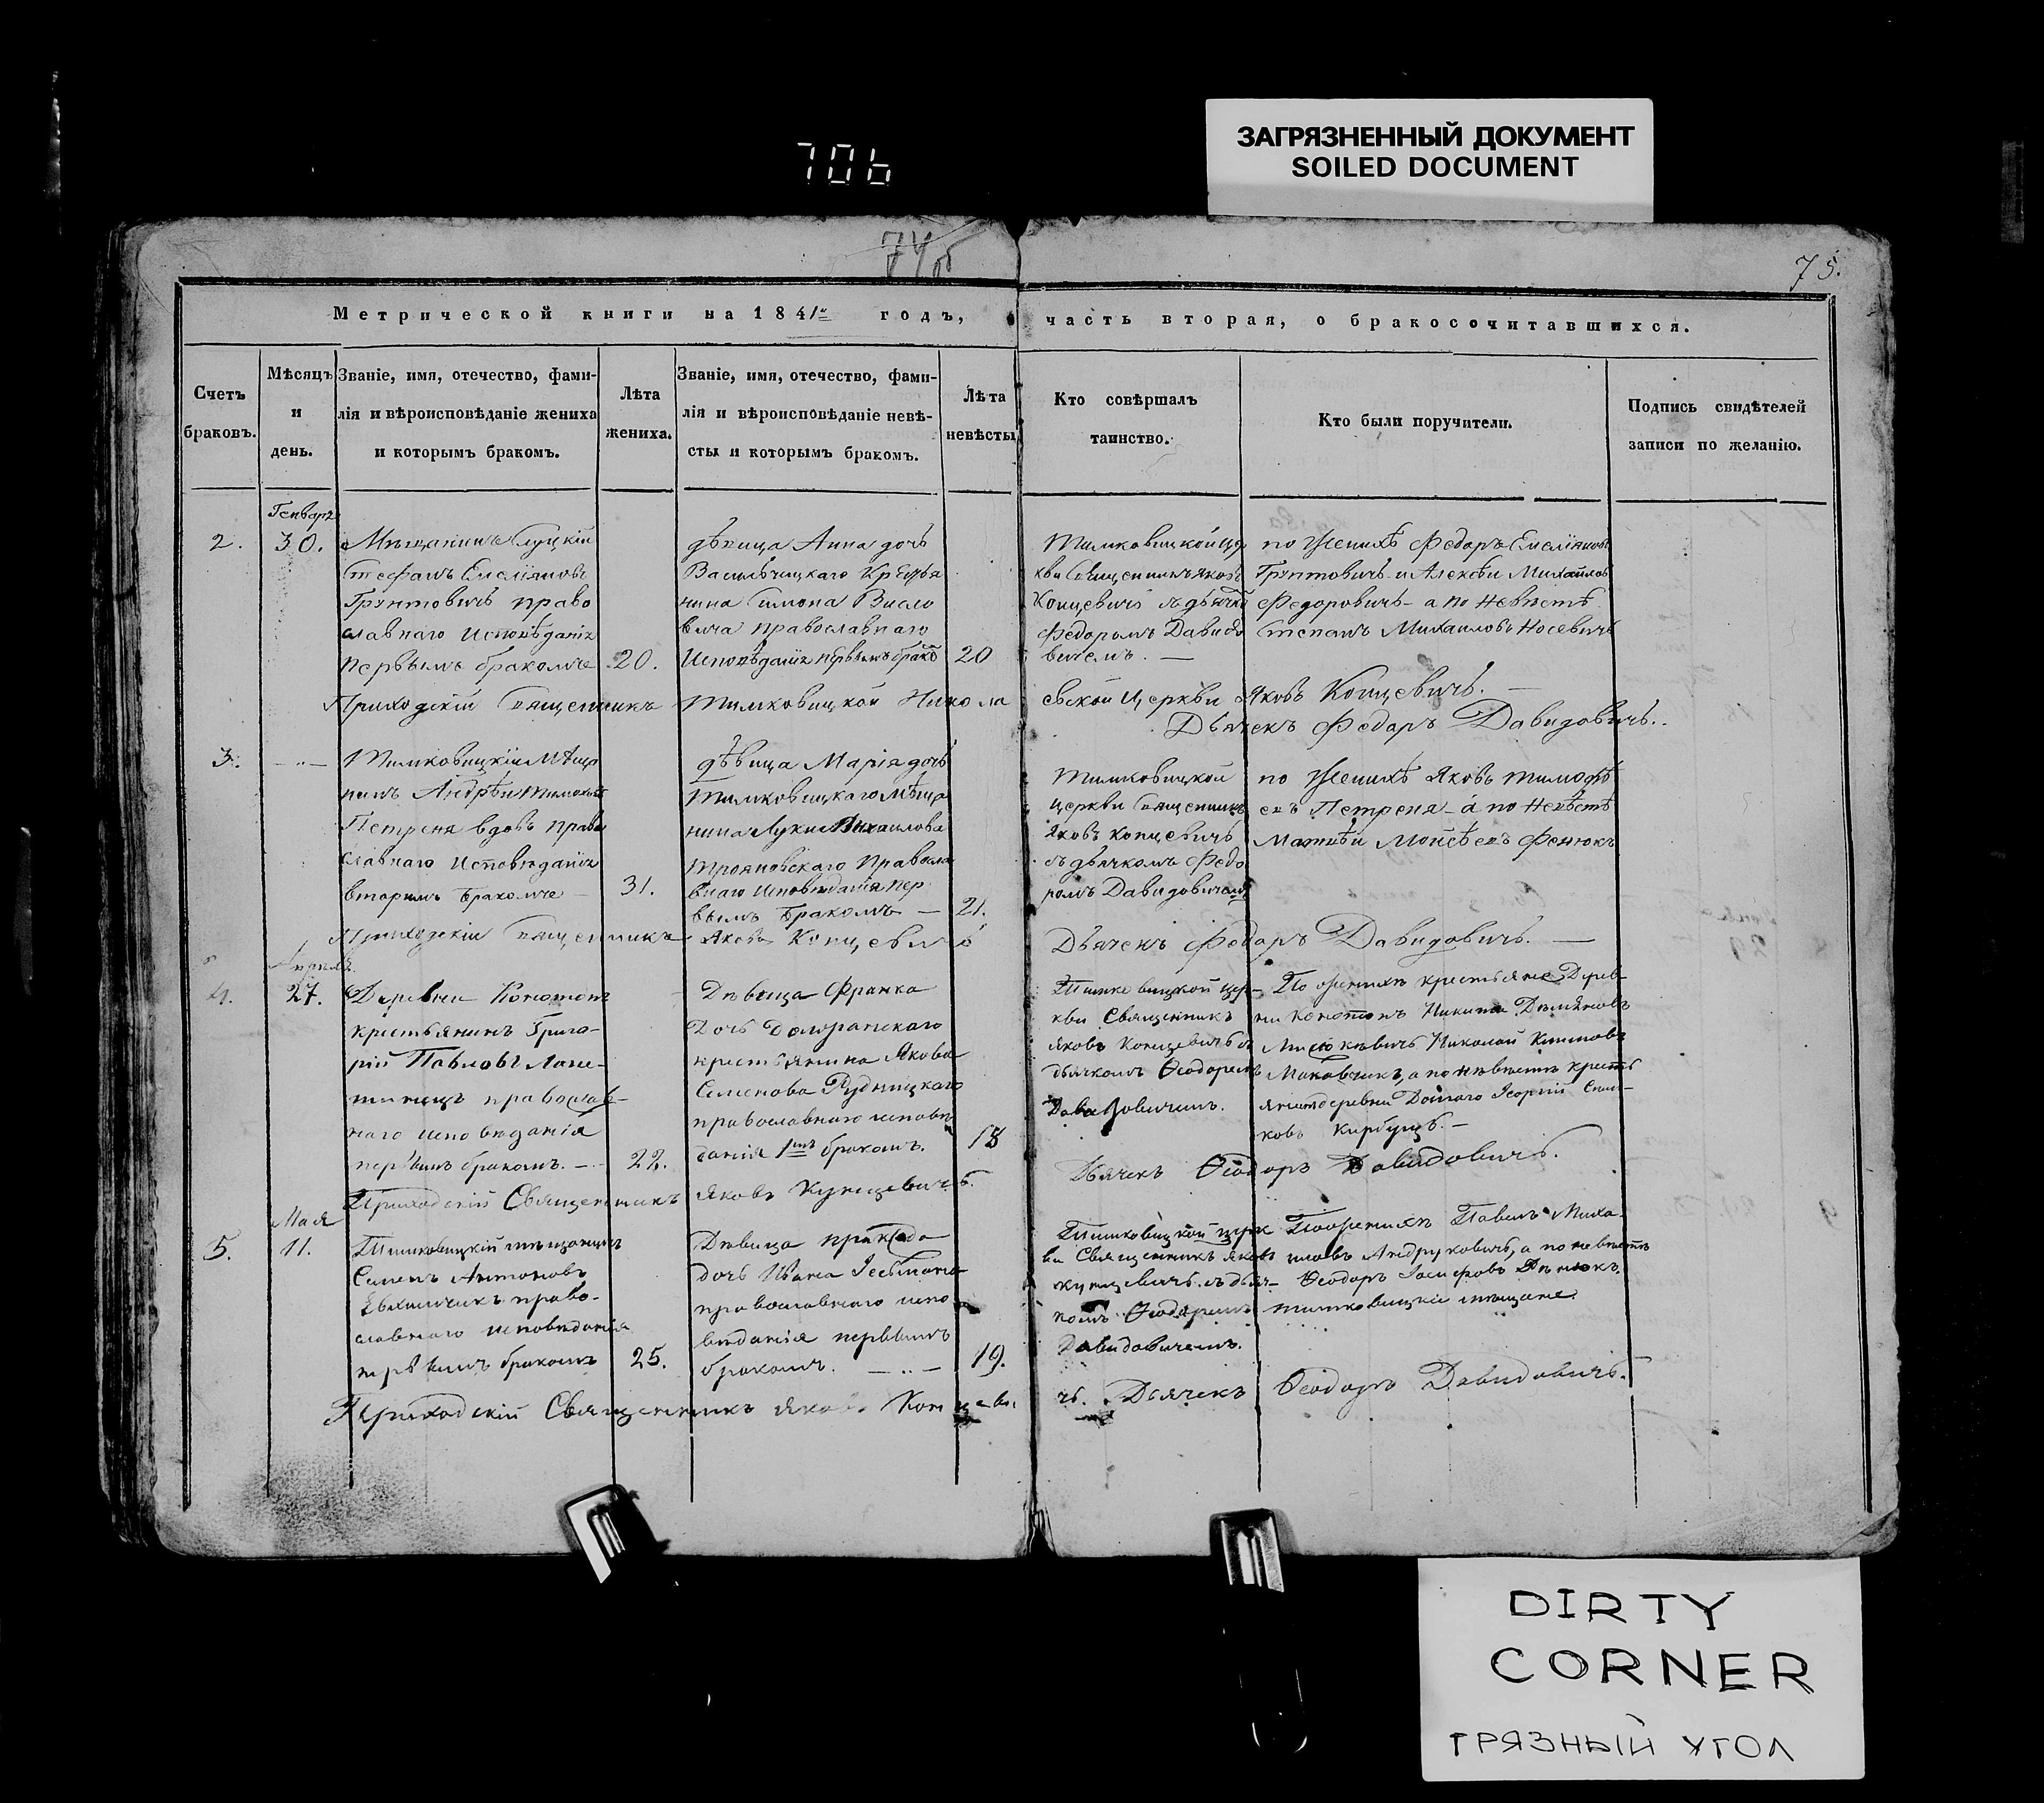 ЗАГРЯЗНЕННЫЙ ДОКУМЕНТ
SOILED DOCUMENT
706
74об
75.
Метрической книги на 1841й годъ, часть вторая, о бракосочитавшихся.
Счетъ браковъ.
Мѣсяцъ и день.
Званіе, имя, отечество, фами-
лія и вѣроисповѣданіе жениха
и которымъ бракомъ.
Лѣта жениха.
Званіе, имя, отечество, фами-
лія и вѣроисповѣданіе невѣ-
сты и которымъ бракомъ.
Лѣта невѣсты
Кто совѣршалъ
таинство.
Кто были поручители.
Подпись свидѣтелей
записи по желанію.
Генваря
2.
30.
Мѣщанинъ Слуцкій
Стефанъ Емеліяновъ
Грунтовичъ право
славнаго Исповѣданія
первымъ бракомъ
20.
дѣвица Анна дочь
Крестья
нина Симона
православнаго
Исповѣданія первымъ брако
20
Тимковицкой Цер
кви Священникъ Яковъ
Концевичъ съ дьячко
Федоромъ Давидо
вичемъ. —
по Женихѣ Федоръ Емеліяновъ
Грунтовичъ и Алексѣй Михайловъ
Федоровичъ - а по Невѣстѣ
Степанъ Михаиловъ Носевичъ
Приходскій Священникъ Тимковицкой Никола
евской Церкви Яковъ Концевичъ. —
Дьячекъ Федоръ Давидовичъ.
3.
— " —
Тимковицкій Мѣща
нинъ Андрѣй
Петреня вдовъ Право
славнаго Исповѣданія
вторымъ Бракомъ —
31.
дѣвица Марія дочь
Тимковицкаго Мѣща
нина Луки Михаилова
Трояновскаго Правосла
внаго Исповѣданія пер
вымъ Бракомъ —
21.
Тимковицкой
Церкви Священникъ
Яковъ Концевичъ
съ дьячкомъ Федо
ромъ Давидовичемъ
по Женихѣ Яковъ Тимофѣ
евъ Петреня - а по Невѣстѣ
Матвѣй Моисѣевъ Фенюкъ
Приходскій Священникъ Яковъ Концевичъ
Дьячекъ Федоръ Давидовичъ. —
Апрѣля.
4.
27.
Деревни Конотопъ
крестьянинъ Григо-
рій Павловъ
православ-
наго исповѣданія
первымъ бракомъ. —
22.
Дѣвица Франка
Дочь
крестьянина Якова
Семенова Рудницкаго
православнаго исповѣ
данія 1мъ бракомъ.
18
Тимковицкой Цер-
кви Священникъ
Яковъ Концевичъ съ
дьячкомъ Ѳеодоромъ
Давидовичемъ.
По женихѣ крестьяне Дерев-
ни Конотопъ Никита
Николай
а по невѣстѣ кресть
деревни Георгій
ковъ
Приходскій Священникъ Яковъ Кунцевичъ.
Дьячекъ Ѳеодоръ Давидовичъ.
Мая
5.
11.
Тимковицкій мѣщанинъ
Семенъ Антоновъ
право-
славнаго исповѣданія
первымъ бракомъ
25.
Дѣвица
дочь Ивана
православнаго испо
вѣданія первымъ
бракомъ. — " —
19.
Тимковицкой церк
ви Священникъ Яковъ
Кунцевичъ съ дьяч-
комъ Ѳеодоромъ
Давидовичемъ.
По женихѣ Павелъ Миха
иловъ Андруковичъ, а по невѣстѣ
Ѳеодоръ Іосифовъ
тимковицкіе мѣщане.
Приходскій Священникъ Яковъ Концеви
чъ. Дьячекъ Ѳеодоръ Давидовичъ.
DIRTY
CORNER
ГРЯЗНЫЙ УГОЛ